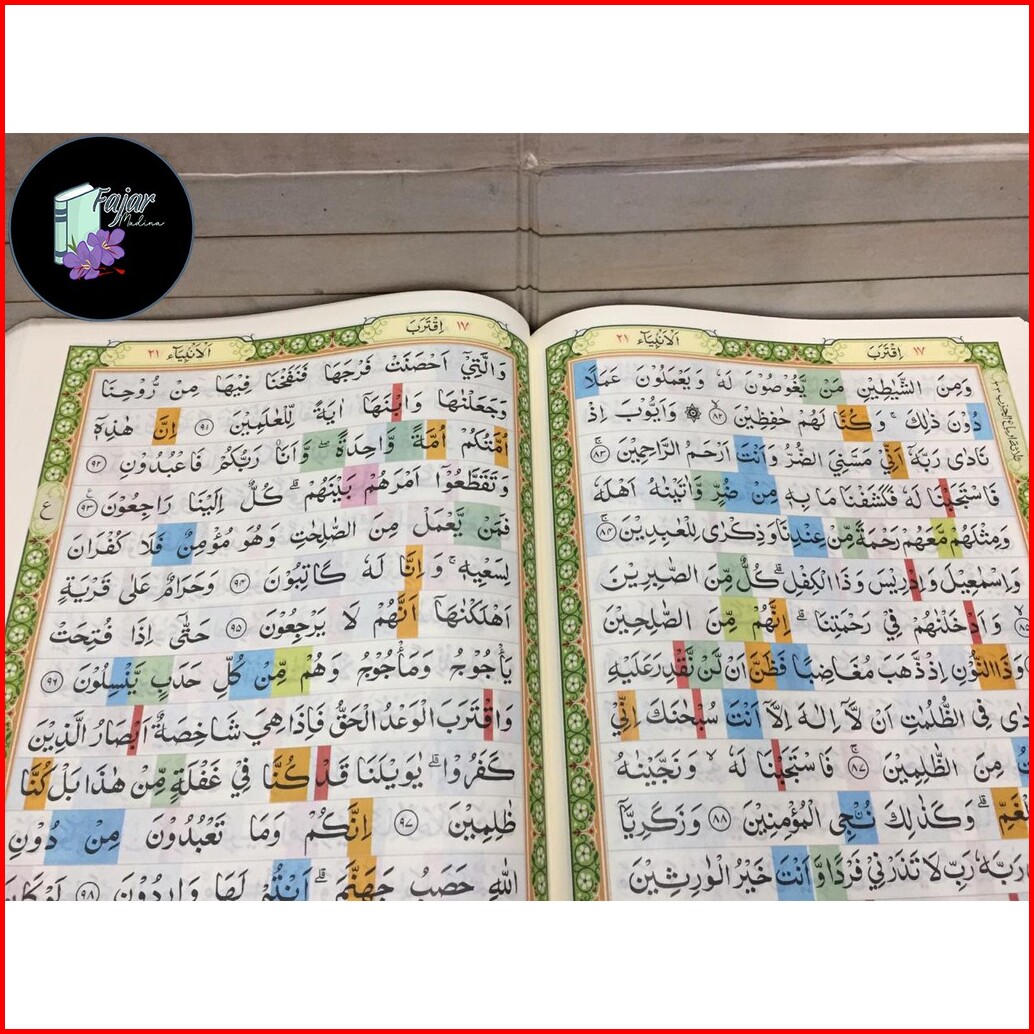 Fajar
Madina
١٧ اِقْتَرَبَ
اَلْاَنْبِيَاۤء ٢١
وَمِنَ الشَّيٰطِيْنِ مَنْ يَّغُوْصُوْنَ لَهٗ وَيَعْمَلُوْنَ عَمَلًا
دُوْنَ ذٰلِكَۚ وَكُنَّا لَهُمْ حٰفِظِيْنَۙ ٨٢ ۞ وَاَيُّوْبَ اِذْ
نَادٰى رَبَّهٗٓ اَنِّيْ مَسَّنِيَ الضُّرُّ وَاَنْتَ اَرْحَمُ الرّٰحِمِيْنَۚ ٨٣
فَاسْتَجَبْنَا لَهٗ فَكَشَفْنَا مَا بِهٖ مِنْ ضُرٍّ وَّاٰتَيْنٰهُ اَهْلَهٗ
وَمِثْلَهُمْ مَّعَهُمْ رَحْمَةً مِّنْ عِنْدِنَا وَذِكْرٰى لِلْعٰبِدِيْنَۚ ٨٤
وَاِسْمٰعِيْلَ وَاِدْرِيْسَ وَذَا الْكِفْلِۗ كُلٌّ مِّنَ الصّٰبِرِيْنَ
٨٥ وَاَدْخَلْنٰهُمْ فِيْ رَحْمَتِنَاۗ اِنَّهُمْ مِّنَ الصّٰلِحِيْنَ
وَذَا النُّوْنِ اِذْ ذَّهَبَ مُغَاضِبًا فَظَنَّ اَنْ لَّنْ نَّقْدِرَ عَلَيْهِ
فِى الظُّلُمٰتِ اَنْ لَّآ اِلٰهَ اِلَّآ اَنْتَ سُبْحٰنَكَ اِنِّيْ
مِنَ الظّٰلِمِيْنَۚ ٨٧ فَاسْتَجَبْنَا لَهٗۙ وَنَجَّيْنٰهُ
وَكَذٰلِكَ نُـْۨجِى الْمُؤْمِنِيْنَ ٨٨ وَزَكَرِيَّآ
رَبَّهٗ رَبِّ لَا تَذَرْنِيْ فَرْدًا وَّاَنْتَ خَيْرُ الْوٰرِثِيْنَ
١٧ اِقْتَرَبَ
اَلْاَنْبِيَاۤء ٢١
وَالَّتِيْٓ اَحْصَنَتْ فَرْجَهَا فَنَفَخْنَا فِيْهَا مِنْ رُّوْحِنَا
وَجَعَلْنٰهَا وَابْنَهَآ اٰيَةً لِّلْعٰلَمِيْنَ ٩١ اِنَّ هٰذِهٖٓ
اُمَّتُكُمْ اُمَّةً وَّاحِدَةًۖ وَّاَنَا۠ رَبُّكُمْ فَاعْبُدُوْنِ ٩٢
وَتَقَطَّعُوْٓا اَمْرَهُمْ بَيْنَهُمْۗ كُلٌّ اِلَيْنَا رَاجِعُوْنَ ٩٣
ع
فَمَنْ يَّعْمَلْ مِنَ الصّٰلِحٰتِ وَهُوَ مُؤْمِنٌ فَلَا كُفْرَانَ
لِسَعْيِهٖۚ وَاِنَّا لَهٗ كَاتِبُوْنَ ٩٤ وَحَرَامٌ عَلٰى قَرْيَةٍ
اَهْلَكْنٰهَآ اَنَّهُمْ لَا يَرْجِعُوْنَ ٩٥ حَتّٰىٓ اِذَا فُتِحَتْ
يَأْجُوْجُ وَمَأْجُوْجُ وَهُمْ مِّنْ كُلِّ حَدَبٍ يَّنْسِلُوْنَ ٩٦
وَاقْتَرَبَ الْوَعْدُ الْحَقُّ فَاِذَا هِيَ شَاخِصَةٌ اَبْصَارُ الَّذِيْنَ
كَفَرُوْاۗ يٰوَيْلَنَا قَدْ كُنَّا فِيْ غَفْلَةٍ مِّنْ هٰذَا بَلْ كُنَّا
ظٰلِمِيْنَ ٩٧ اِنَّكُمْ وَمَا تَعْبُدُوْنَ مِنْ دُوْنِ
اللّٰهِ حَصَبُ جَهَنَّمَۗ اَنْتُمْ لَهَا وَارِدُوْنَ ٩٨ لَوْ كَانَ